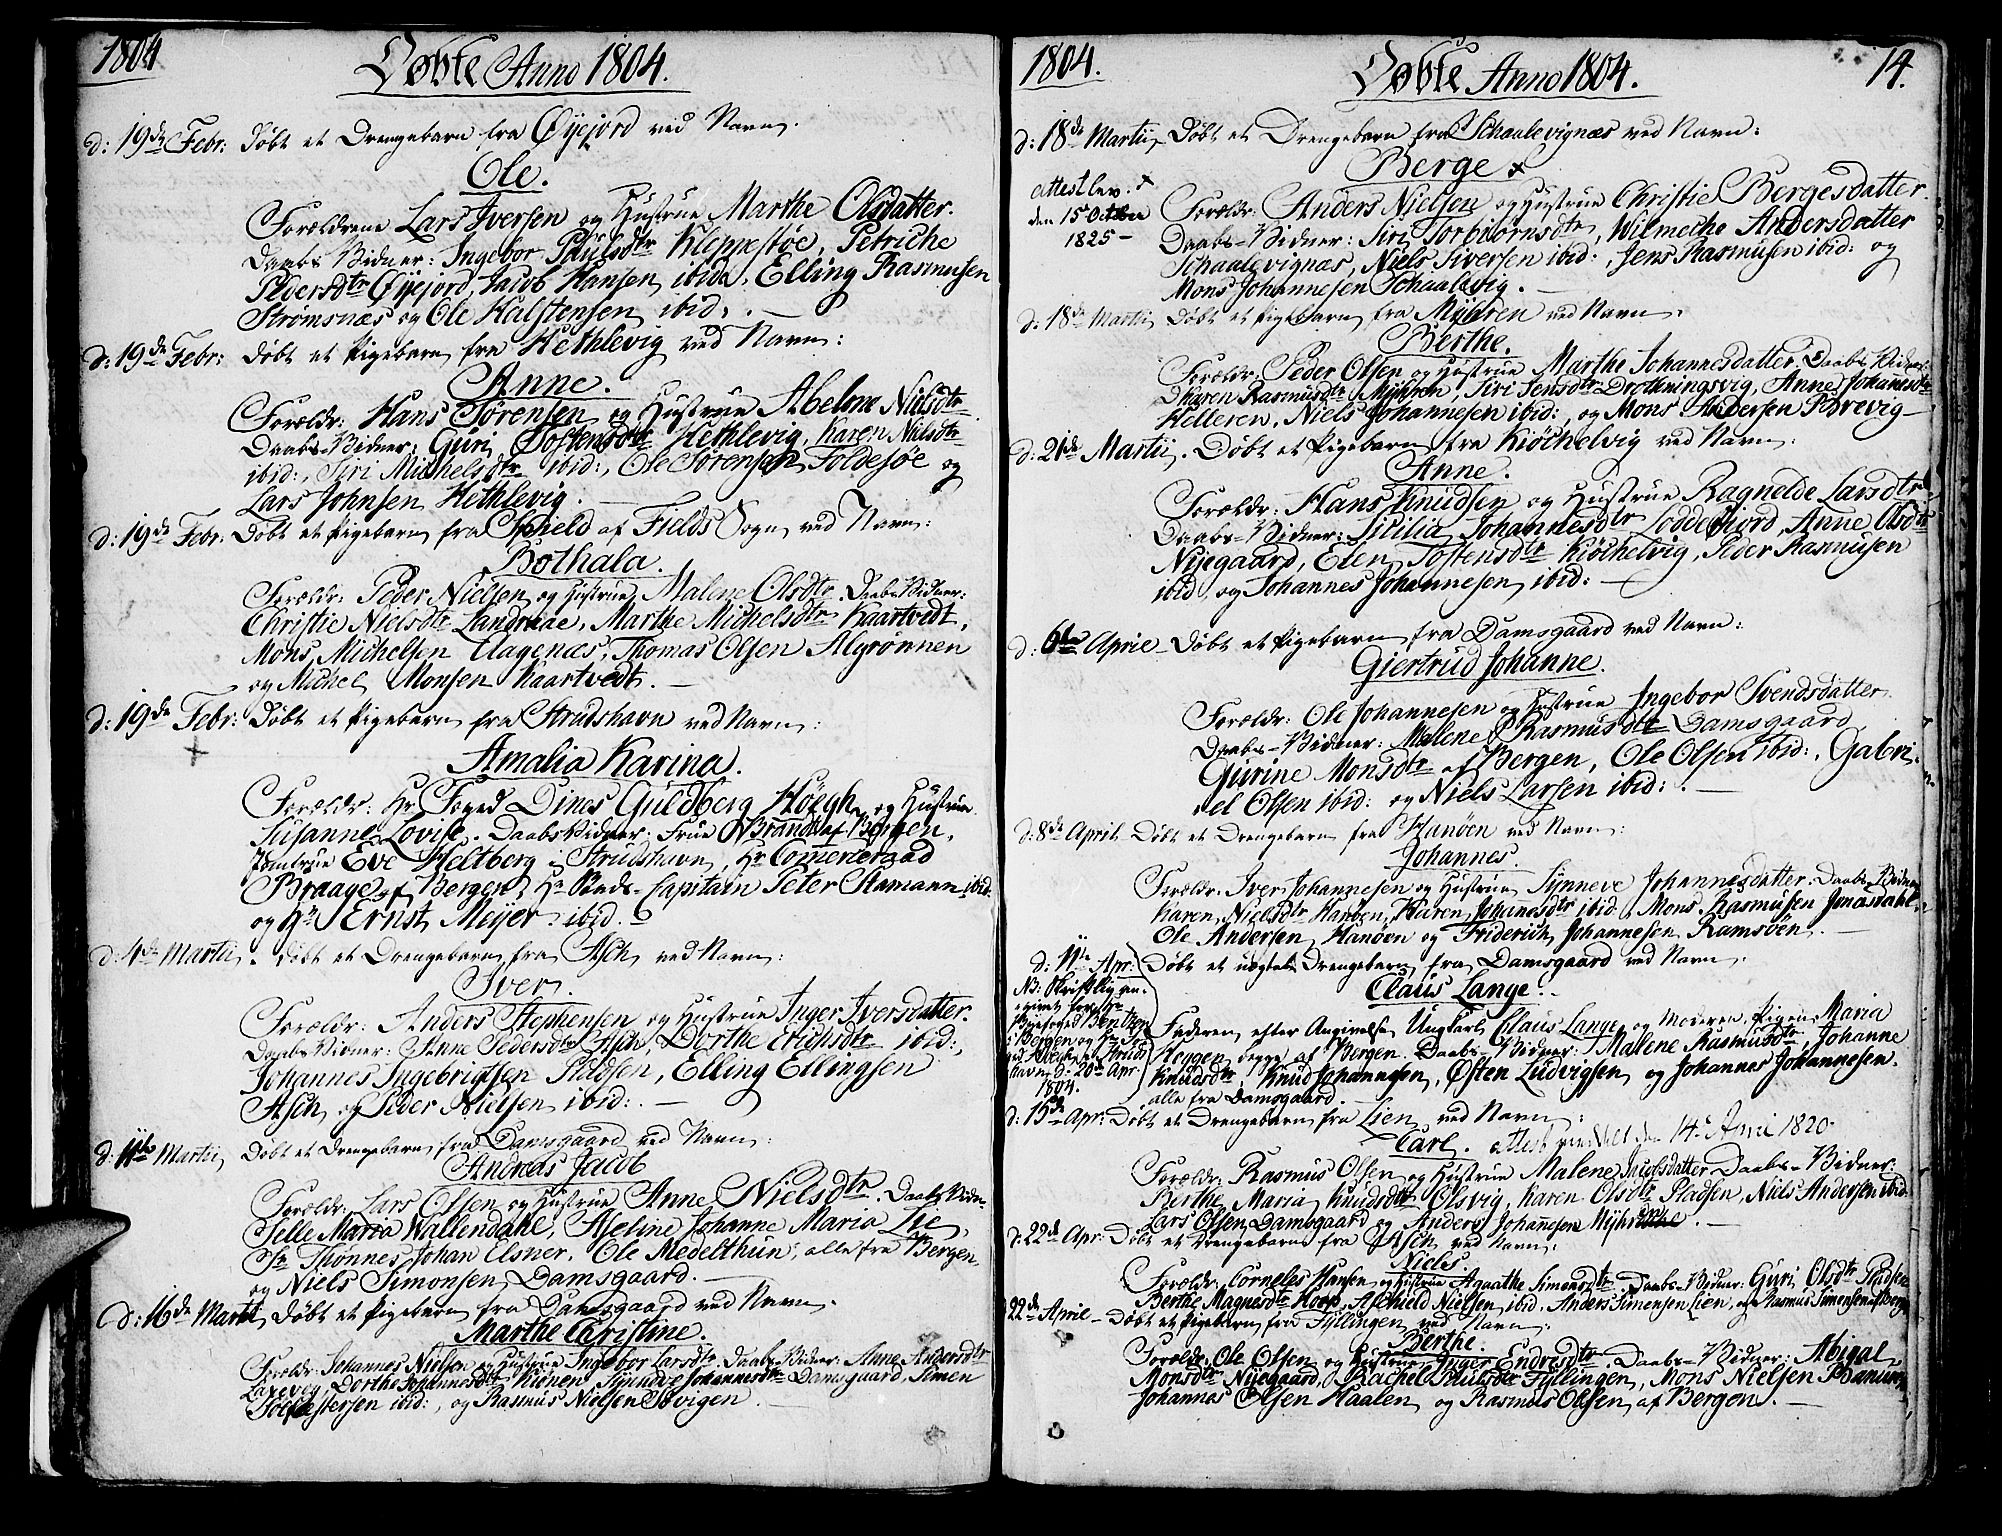 1804
Døbte Anno 1804.
d: 19de Febr: Døbt et Drengebarn fra Øyejord ved Navn.
Ole.
Forældrene Lars Iversen og Hustrue Marthe Olsdatter.
Daabs Vidner: Ingebor Paulsdtr Kleppestøe, Petriche
Pedersdtr Øyejord, Jacob Hansen ibid:, Elling Rasmusen
Strømsnæs og Ole Halstensen ibid: . —
d: 19de Febr: Døbt et Pigebarn fra Hethlevig ved Navn:
Anne.
Forældr: Hans Sørensen og Hustrue Abelone Nielsdtr
Daabs-Vidner: Guri Tostensdtr Hethlevig, Karen Nielsdtr
ibid:, Siri Michelsdtr ibid:, Ole Sørensen Foldesøe og
Lars Johnsen Hethlevig. —
d: 19de Febr: Døbt et Pigebarn fra af Fields Sogn ved Navn:
Bothala.
Forældr: Peder Nielsen og Hustrue Malene Olsdtr. Daabs Vidner:
Christie Nielsdtr Landraae, Marthe Michelsdtr Kaartvedt,
Mons Michelsen Aagenæs, Thomas Olsen Algrønnen
og Michel Monsen Kaartvedt. —
d: 19de Febr: Døbt et Pigebarn fra Strudshavn ved Navn:
+
Amalia Karina.
Forældr: Hr Foged Dines Guldberg Høegh og Hustrue
Susanne Lovise. Daabs Vidner: Frue Brandt af Bergen,
Jomfrue Eve Heltberg i Strudshavn, Hr Comerteraad
Braage af Bergen, Hr Capitain Peter Stamann ibid:
og Hr Ernst Meyer ibid.
d: 4de Martii. Døbt et Drengebarn fra Asch ved Navn:
Iver.
Forældr: Anders Stephensen og Hustrue Inger Iversdatter.
Daabs Vidner: Anne Pedersdtr Asch, Dorthe Erichsdtr ibid:,
Johannes Ingebrigtsen Pladsen, Elling Ellingsen
Asch og Peder Nielsen ibid: . —
d: 11te Martii Døbt et Drengebarn fra Damsgaard ved Navn:
Andreas Jacob
Forældr: Lars Olsen og Hustrue Anne Nielsdtr. Daabs Vidn-
Selle Maria Wallendahl, Abeline Johanne Maria Lie,
Sr Thønnes Johan Elsner, Ole Medelthun, alle fra Bergen
og Niels Simonsen Damsgaard. —
d: 16de Martii Døbt et Pigebarn fra Damsgaard ved Navn.
Marthe Christine.
Forældr: Johannes Nielsen og Hustrue Ingebor Larsdtr. Daabs Vidner: Anne Andersdtr
Laxevog, Dorthe Johannesdtr Synneve Johannesdtr Damsgaard, Simen
ibid:, og Rasmus Nielsen . —
1804.
Døbte Anno 1804.
14.
d: 18de Martii Døbt et Drengebarn fra Schaalevignæs ved Navn:
Berge +
attest lev. +
den 15 October
1825 —
Forældr: Anders Nielsen og Hustrue Christie Bergesdatter.
Daabs-Vidner: Siri Torbiørnsdtr, Wilmeche Andersdatter
Schaalevignæs, Niels Siversen ibid:, Jens Rasmusen ibid: og
Mons Johannesen Schaalevig. —
d: 18de Martii Døbt et Pigebarn fra Myhren ved Navn.
Berthe.
Forældr: Peder Olsen og Hustrue Marthe Johannesdatter. Daabs Vidner
Karen Rasmusdtr Myhren, Siri Jensdtr Drotningsvig, Anne Johanesdtr
Helleren, Niels Johannesen ibid: og Mons Andersen Brevig —
d: 21de Martii. Døbt et Pigebarn fra Kiøchelvig ved Navn:
Anne.
Forældr: Hans Knudsen og Hustrue Ragnelde Larsdtr.
Daabs-Vidner: Sicilia Johannesdtr Loddefiord, Anne Olsdtr
Nyegaard, Elen Tostensdtr Kiøchelvig, Peder Rasmusen
ibid og Johannes Johannesen ibid: —
d: 6te Aprie Døbt et Pigebarn fra Damsgaard ved Navn:
Giertrud Johanne.
Forældr: Ole Johannesen og Hustrue Ingebor Svendsdatter.
Daabs-Vidner: Malene Rasmusdtr Damsgaard
Gurine Monsdtr af Bergen, Ole Olsen ibid:, Gabri-
el Olsen ibid: og Niels Larsen ibid: . —
d: 8de April. Døbt et Drengebarn fra Hanøen ved Navn:
Johannes.
Forældr: Iver Johannesen og Hustrue Synneve Johannesdatter. Daabs-Vidner
Karen Nielsdtr Hanøen, Karen Johanesdtr ibid:, Mons Rasmusen Jonasdahl
Ole Andersen Hanøen og Friderich Johannesen Ramsøen. —
d: 11te Apr: Døbt et uægte Drengebarn fra Damsgaard ved Navn.
Claus Lange.
NB: Skriftlig an-
givet for
Byefoged Bentzon
i Bergen og Hr Fo-
ged Høegh i Struds
havn d: 20de Apr
1804.
Faderen efter Angivelse Ungkarl Claus Lange og Moderen Pigen Maria
Heggen begge af Bergen. Daabs-Vidner: Malene Rasmusdtr, Johanne
Knudsdtr, Knud Johannesen, Østen Ludvigsen og Johannes Johannesen.
alle fra Damsgaard. —
d: 15de Apr: Døbt et Drengebarn fra Lien ved Navn:
Carl. attest meddelt den 14 April 1820.
Forældr: Rasmus Olsen og Hustrue Malene Jacobsdatter Daabs-Vidner:
Berthe Maria Knudsdtr Olsvig, Karen Olsdtr Pladsen, Niels Andersen ibid:
Lars Olsen Damsgaard og Anders Johannesen . —
d: 22de Apr: Døbt et Drengebarn fra Asch ved Navn:
Niels.
Forældr: Corneles Hansen og Hustrue Agaathe Simensdtr. Daabs-Vidner: Guri Olsdtr Pladsen
Berthe Magnesdtr Hoop, Aschield Nielsen ibid. Anders Simensen Lien, og Rasmus Simensen af Berg
22de April — Døbt et Pigebarn fra Fyllingen ved Navn:
Berthe.
Forældr: Ole Olsen og Hustrue Inger Endresdtr. Daabs-Vidner: Abigal
Monsdtr Nyegaard, Rachel Paulsdtr Fyllingen, Mons Nielsen
Johannes Olsen Haalen og Rasmus Olsen af Bergen. —